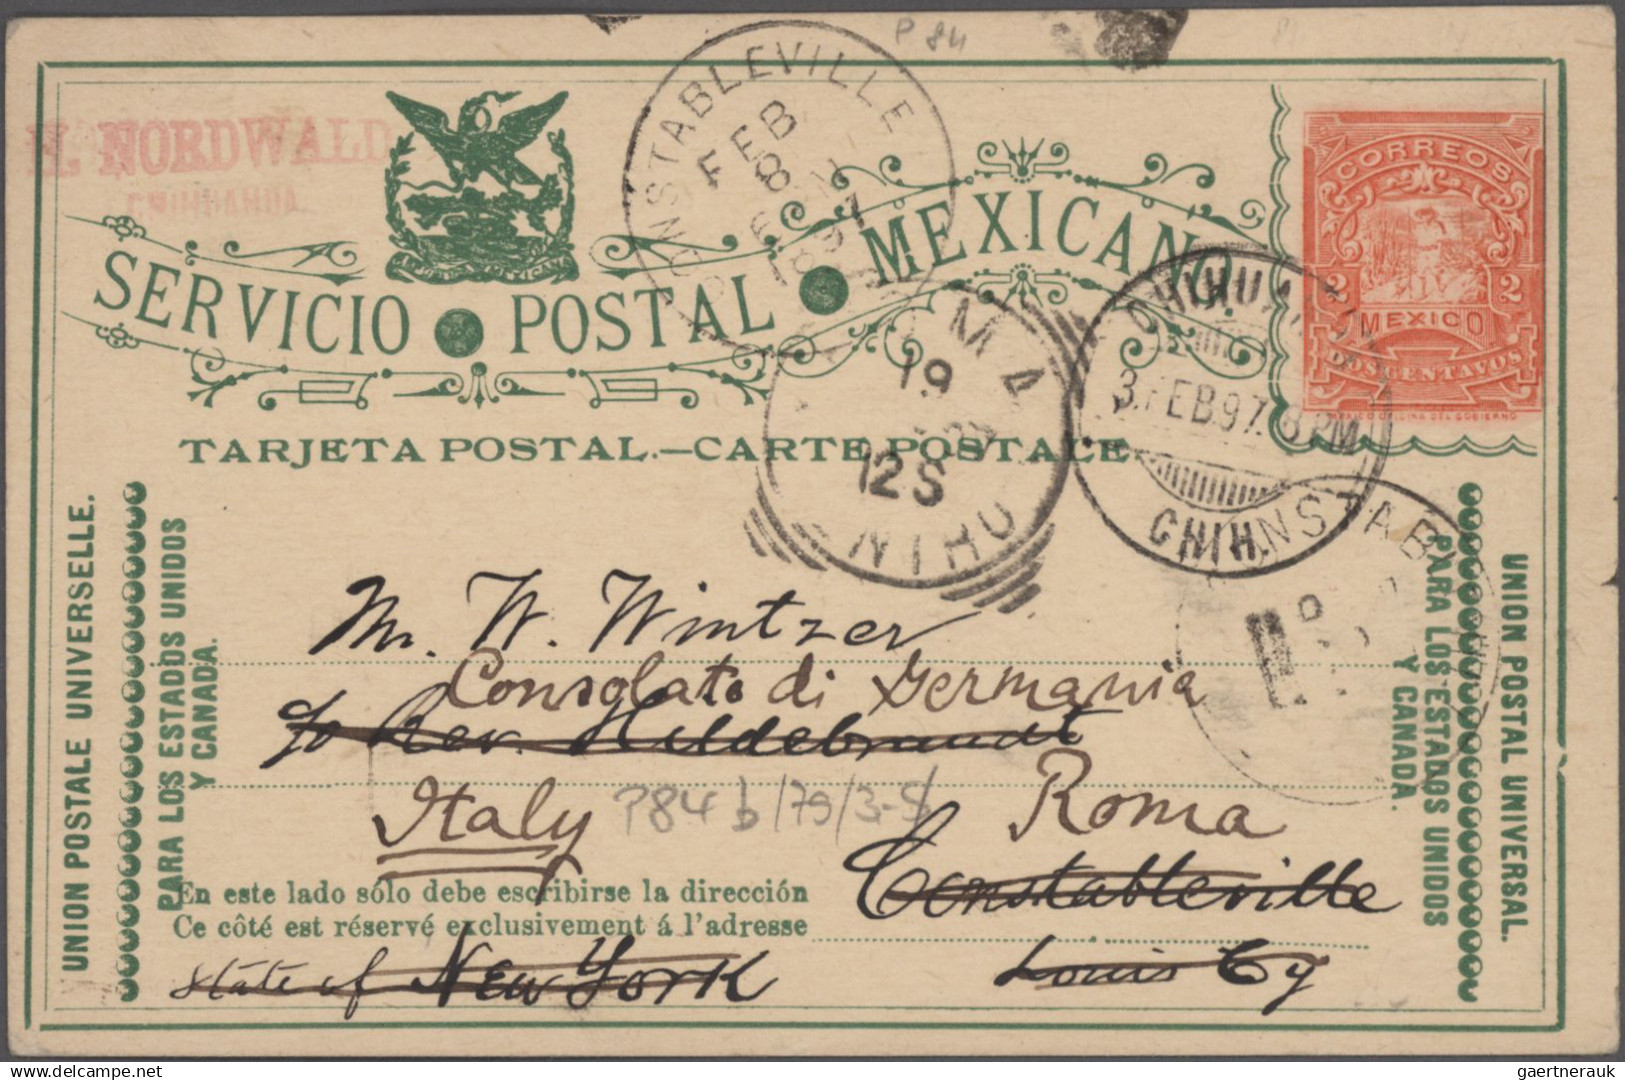 P 84
H. NORDWALD
CHIHUAHUA
CONSTABLEVILLE
FEB
8
1897
CORREOS
2 2
MEXICO
DOS CENTAVOS
SERVICIO POSTAL MEXICANO.
CHIHUAHUA
3.FEB.97.8PM
CHIH.
19
12S
TARJETA POSTAL.—CARTE POSTALE.
NSTAB
UNION POSTALE UNIVERSELLE.
PARA LOS ESTADOS UNIDOS
Y CANADA.
UNION POSTAL UNIVERSAL.
PARA LOS ESTADOS UNIDOS
Y CANADA.
Mr. W. Wintzer
Consolato di Germania
c/o Rev. Hildebrandt
Italy Roma
P84 b/79/3-5
Constableville
En este lado sólo debe escribirse la dirección
Ce côté est réservé exclusivement á l'adresse
State of New York Louis Cy
gaertnerauk